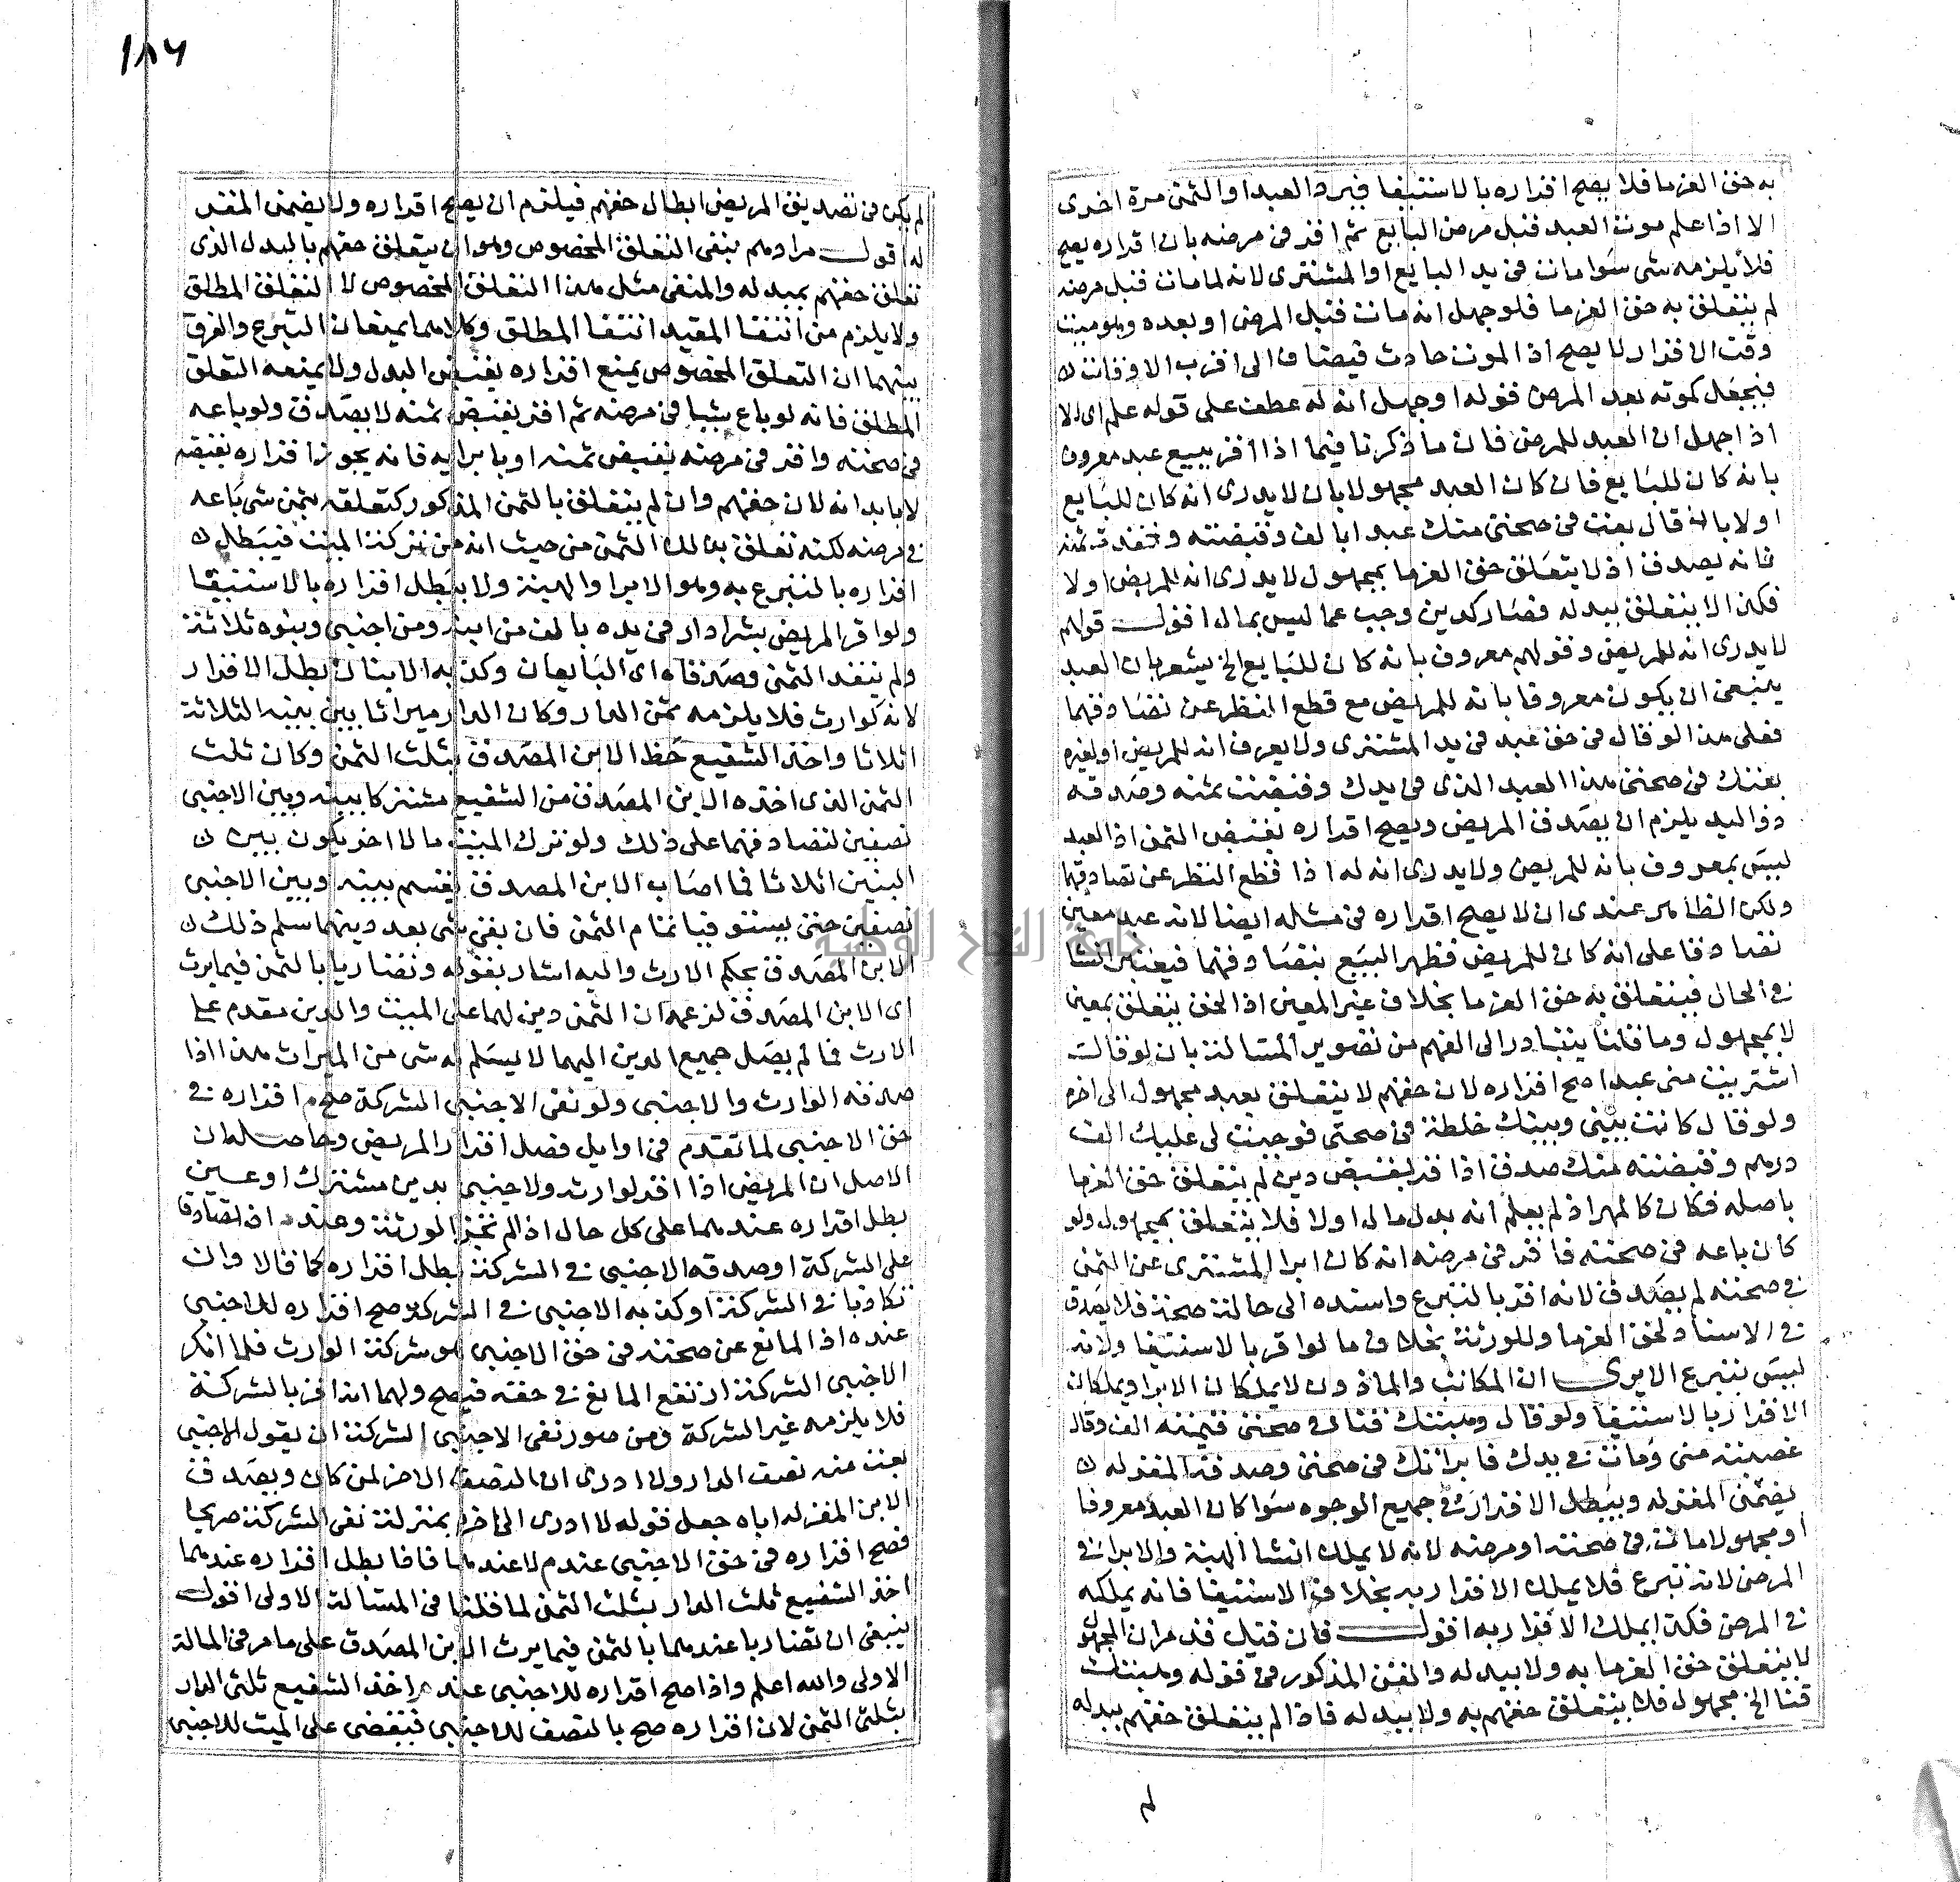 به حق الغرما فلا يصح اقراره بالاستيفا فيرد العبد او الثمن مرة اخرى
الا اذا علم موت العبد قبل مرض البايع ثم اقر في مرضه بان اقراره يصح
فلا يلزمه شى سوا مات في يد البايع او المشترى لانه لما مات قبل مرضه
لم يتعلق به حق الغرما فلو جهل انه مات قبل المرض او بعده وهو ميت
وقت الاقرار لا يصح اذ الموت حادث فيضاف الى اقرب الاوقات
فيجعل كموته بعد المرض قوله او جهل انه له عطف على قوله علم اى الا
اذا جهل ان العبد للمريض فان ما ذكرنا فيما اذا اقر ببيع عبد معروف
بانه كان للبايع فان كان العبد مجهولا بان لا يدرى انه كان للبايع
اولا بان قال بعت في صحتي منك عبدا بالف وقبضته ونقدت ثمنه
فانه يصدق اذ لا يتعلق حق الغرما بمجهول لا يدرى انه للمريض اولا
فكذا لا يتعلق ببدله فصار كدين وجب عما ليس بمال اقول قولهم
لا يدرى انه للمريض وقولهم معروف بانه كان للبايع الخ يشعر بان العبد
ينبغى ان يكون معروفا بانه للمريض مع قطع النظر عن تصادقهما
فعلى هذا لو قال في حق عبد في يد المشترى ولا يعرف انه للمريض او لغيره
بعتك في صحتي هذا العبد الذى في يدك وقبضت ثمنه وصدقه
ذو اليد يلزم ان يصدق المريض ويصح اقراره بقبض الثمن اذ العبد
ليس بمعروف بانه للمريض ولا يدرى انه له اذا قطع النظر عن تصادقهما
ولكن الظاهر عندى ان لا يصح اقراره في مثله ايضا لانه عبد معين
تصادقا على انه كان للمريض فظهر البيع بتصادقهما فيعتبر انشا
في الحال فيتعلق به حق الغرما بخلاف غير المعين اذ الحق يتعلق بمعين
لا بمجهول وما قلنا يتبادر الى الفهم من تصوير المسالة بان لو قال
اشتريت منى عبدا صح اقراره لان حقهم لا يتعلق بعبد مجهول الى اخره
ولو قال كانت بينى وبينك خلطة في صحتي فوجبت لى عليك الف
درهم وقبضته منك صدق اذا قر بقبض دين لم يتعلق حق الغرما
باصله فكان كالمهر اذ لم يعلم انه بدل مال اولا فلا يتعلق بمجهول ولو
كان باعه في صحته فاقر في مرضه انه كان ابرا المشترى عن الثمن
في صحته لم يصدق لانه اقر بالتبرع واسنده الى حالة صحته فلا يصدق
في الاسناد لحق الغرما وللورثة بخلاف ما لو اقر بالاستيفا ولانه
ليس بتبرع الا يرى ان المكاتب والماذون لا يملكان الابرا ويملكان
الاقرار بالاستيفا ولو قال وهبتك قنا في صحتي قيمته الف وقال
غصبته منى ومات في يدك فابراتك في صحتي وصدقه المقر له
يضمن المقر له ويبطل الاقرار في جميع الوجوه سوا كان العبد معروفا
او مجهولا مات في صحته او مرضه لانه لا يملك انشا الهبة والابرا في
المرض لانه تبرع فلا يملك الاقرار به بخلاف الاستيفا فانه يملكه
في المرض فكذا يملك الاقرار به اقول فان قيل قد مر ان المجهول
لا يتعلق حق الغرما به ولا ببدله والقن المذكور في قوله وهبتك
قنا الخ مجهول فلا يتعلق حقهم به ولا ببدله فاذا لم يتعلق حقهم ببدله
لم
١٨٦
لم يكن في تصديق المريض ابطال حقهم فيلزم ان يصح اقراره ولا يضمن المقر
له اقول مرادهم بنفى التعلق المخصوص وهو ان يتعلق حقهم بالبدل الذى
تعلق حقهم بمبدله والمنفى مثل هذا التعلق المخصوص لا التعلق المطلق
ولا يلزم من انتفا المقيد انتفا المطلق وكلاهما يمنعان التبرع والفرق
بينهما ان التعلق المخصوص يمنع اقراره بقبض البدل ولا يمنعه التعلق
المطلق فانه لو باع شيا في مرضه ثم اقر بقبض ثمنه لا يصدق ولو باعه
في صحته واقر في مرضه بقبض ثمنه او بابرايه فانه يجوز اقراره بقبضه
لا بابرائه لان حقهم وان لم يتعلق بالثمن المذكور كتعلقه بثمن شى باعه
في مرضه لكنه تعلق بذلك الثمن من حيث انه من تركة الميت فيبطل
اقراره بالتبرع به وهو الابرا والهبة ولا يبطل اقراره بالاستيفا
ولو اقر المريض بشرا دار في يده بالف من ابنه ومن اجنبي وبنوه ثلاثة
ولم ينقد الثمن وصدقاه اى البايعان وكذبه الابنان بطل الاقرار
لانه كوارث فلا يلزمه ثمن الدار وكان الدار ميراثا بين بنيه الثلاثة
اثلاثا واخذ الشفيع حظ الابن المصدق بثلث الثمن وكان ثلث
الثمن الذى اخذه الابن المصدق من الشفيع مشتركا بينه وبين الاجنبي
نصفين لتصادقهما على ذلك ولو ترك الميت مالا اخر يكون بين
البنين اثلاثا فما اصاب الابن المصدق يقسم بينه وبين الاجنبي
نصفين حتى يستوفيا تمام الثمن فان بقى شى بعد دينهما سلم ذلك
الابن المصدق بحكم الارث واليه اشار بقوله وتضاربا بالثمن فيما يرث
اى الابن المصدق لزعمه ان الثمن دين لهما على الميت والدين مقدم على
الارث فما لم يصل جميع الدين اليهما لا يسلم له شى من الميراث هذا اذا
صدقه الوارث والاجنبي ولو نفى الاجنبي الشركة صح اقراره في
حق الاجنبي لما تقدم في اوايل فصل اقرار المريض وحاصله ان
الاصل ان المريض اذا اقر لوارثه ولاجنبي بدين مشترك او عين
بطل اقراره عندهما على كل حال اذا لم تجز الورثة وعنده ان تصادقا
على الشركة او صدقه الاجنبي في الشركة بطل اقراره كما قالا وان
تكاذبا في الشركة او كذبه الاجنبي في الشركة صح اقراره للاجنبي
عنده اذ المانع عن صحته في حق الاجنبي هو شركة الوارث فلما انكر
الاجنبي الشركة ارتفع المانع في حقه فيصح ولهما انه اقر بالشركة
فلا يلزمه غير الشركة ومن صور نفى الاجنبي الشركة ان يقول الاجنبي
بعت منه نصف الدار ولا ادرى ان النصف الاخر لمن كان ويصدق
الابن المقر له اباه جعل قوله لا ادرى الى اخره بمنزلة نفى الشركة صريحا
فصح اقراره في حق الاجنبي عنده لا عندهما فاذا بطل اقراره عندهما
اخذ الشفيع ثلث الدار بثلث الثمن لما قلنا في المسالة الاولى اقول
ينبغى ان تضاربا عندهما بالثمن فيما يرث الابن المصدق على ما مر في المسالة
الاولى والله اعلم واذا صح اقراره للاجنبي عنده اخذ الشفيع ثلثى الدار
بثلثى الثمن لان اقراره صح بالنصف للاجنبي فيقضى على الميت للاجنبي
جامعة النجاح الوطنية